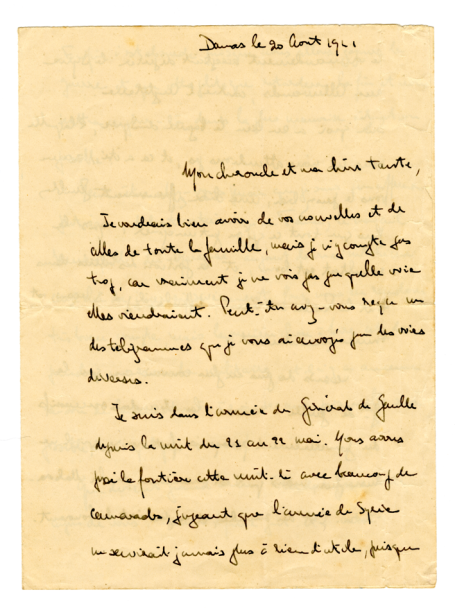 Damas le 20 Août 1941
Mon cher oncle et ma chère tante,
Je voudrais bien avoir de vos nouvelles et de
celles de toute la famille, mais je n'y compte pas
trop, car vraiment je ne vois pas par quelle voie
elles viendraient. Peut-être avez-vous reçu un
des télégrammes que je vous ai envoyés par des voies
diverses.
Je suis dans l'armée du Général de Gaulle
depuis la nuit du 21 au 22 mai. Nous avons
passé la frontière cette nuit-là avec beaucoup de
camarades, jugeant que l'armée de Syrie
ne servirait jamais plus à rien d'utile, puisque